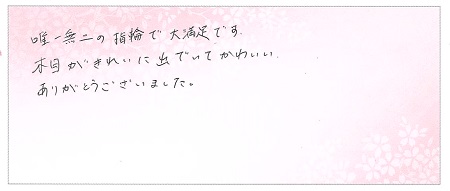 唯一無二の指輪で大満足です.
木目がきれいに出でいてかわいい.
ありがとうございました。